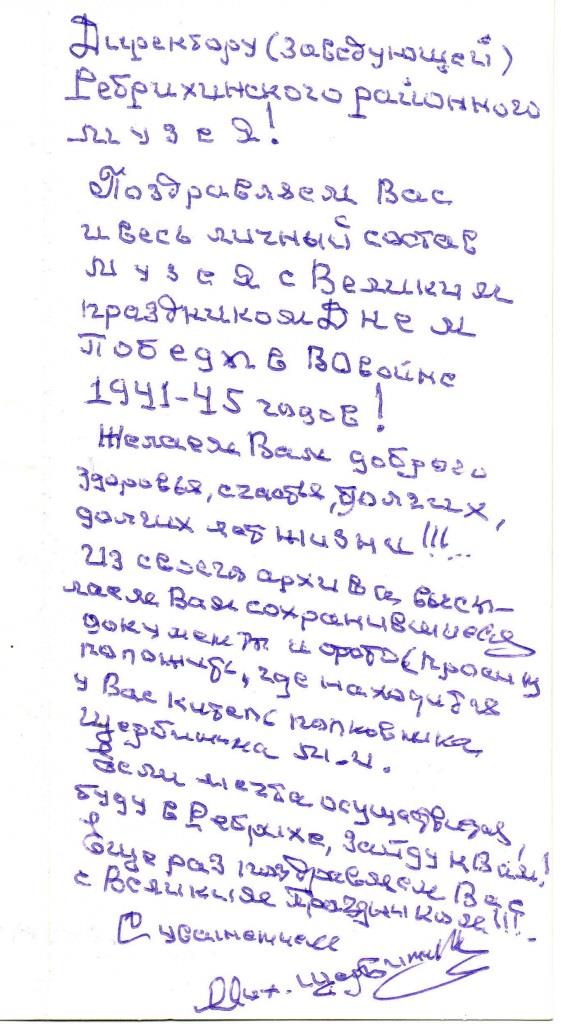 Директору (Заведующей)
Ребрихинского районного
музея!
Поздравляем Вас
и весь личный состав
музея с Великим
праздником Днем
Победы в ВОвойне
1941-45 годов!
Желаем Вам доброго
здоровья, счастья, долгих,
долгих лет жизни!!!
Из своего архива высы-
лаем Вам сохранившиеся
документ и фото (просим
положить, где находится
у Вас китель полковника
Щербинина М.И.
Если мечта осуществится,
буду в Ребрихе, зайду к Вам!
Еще раз поздравляем Вас
с Великим Праздником!!!
С уважением
Щербинин